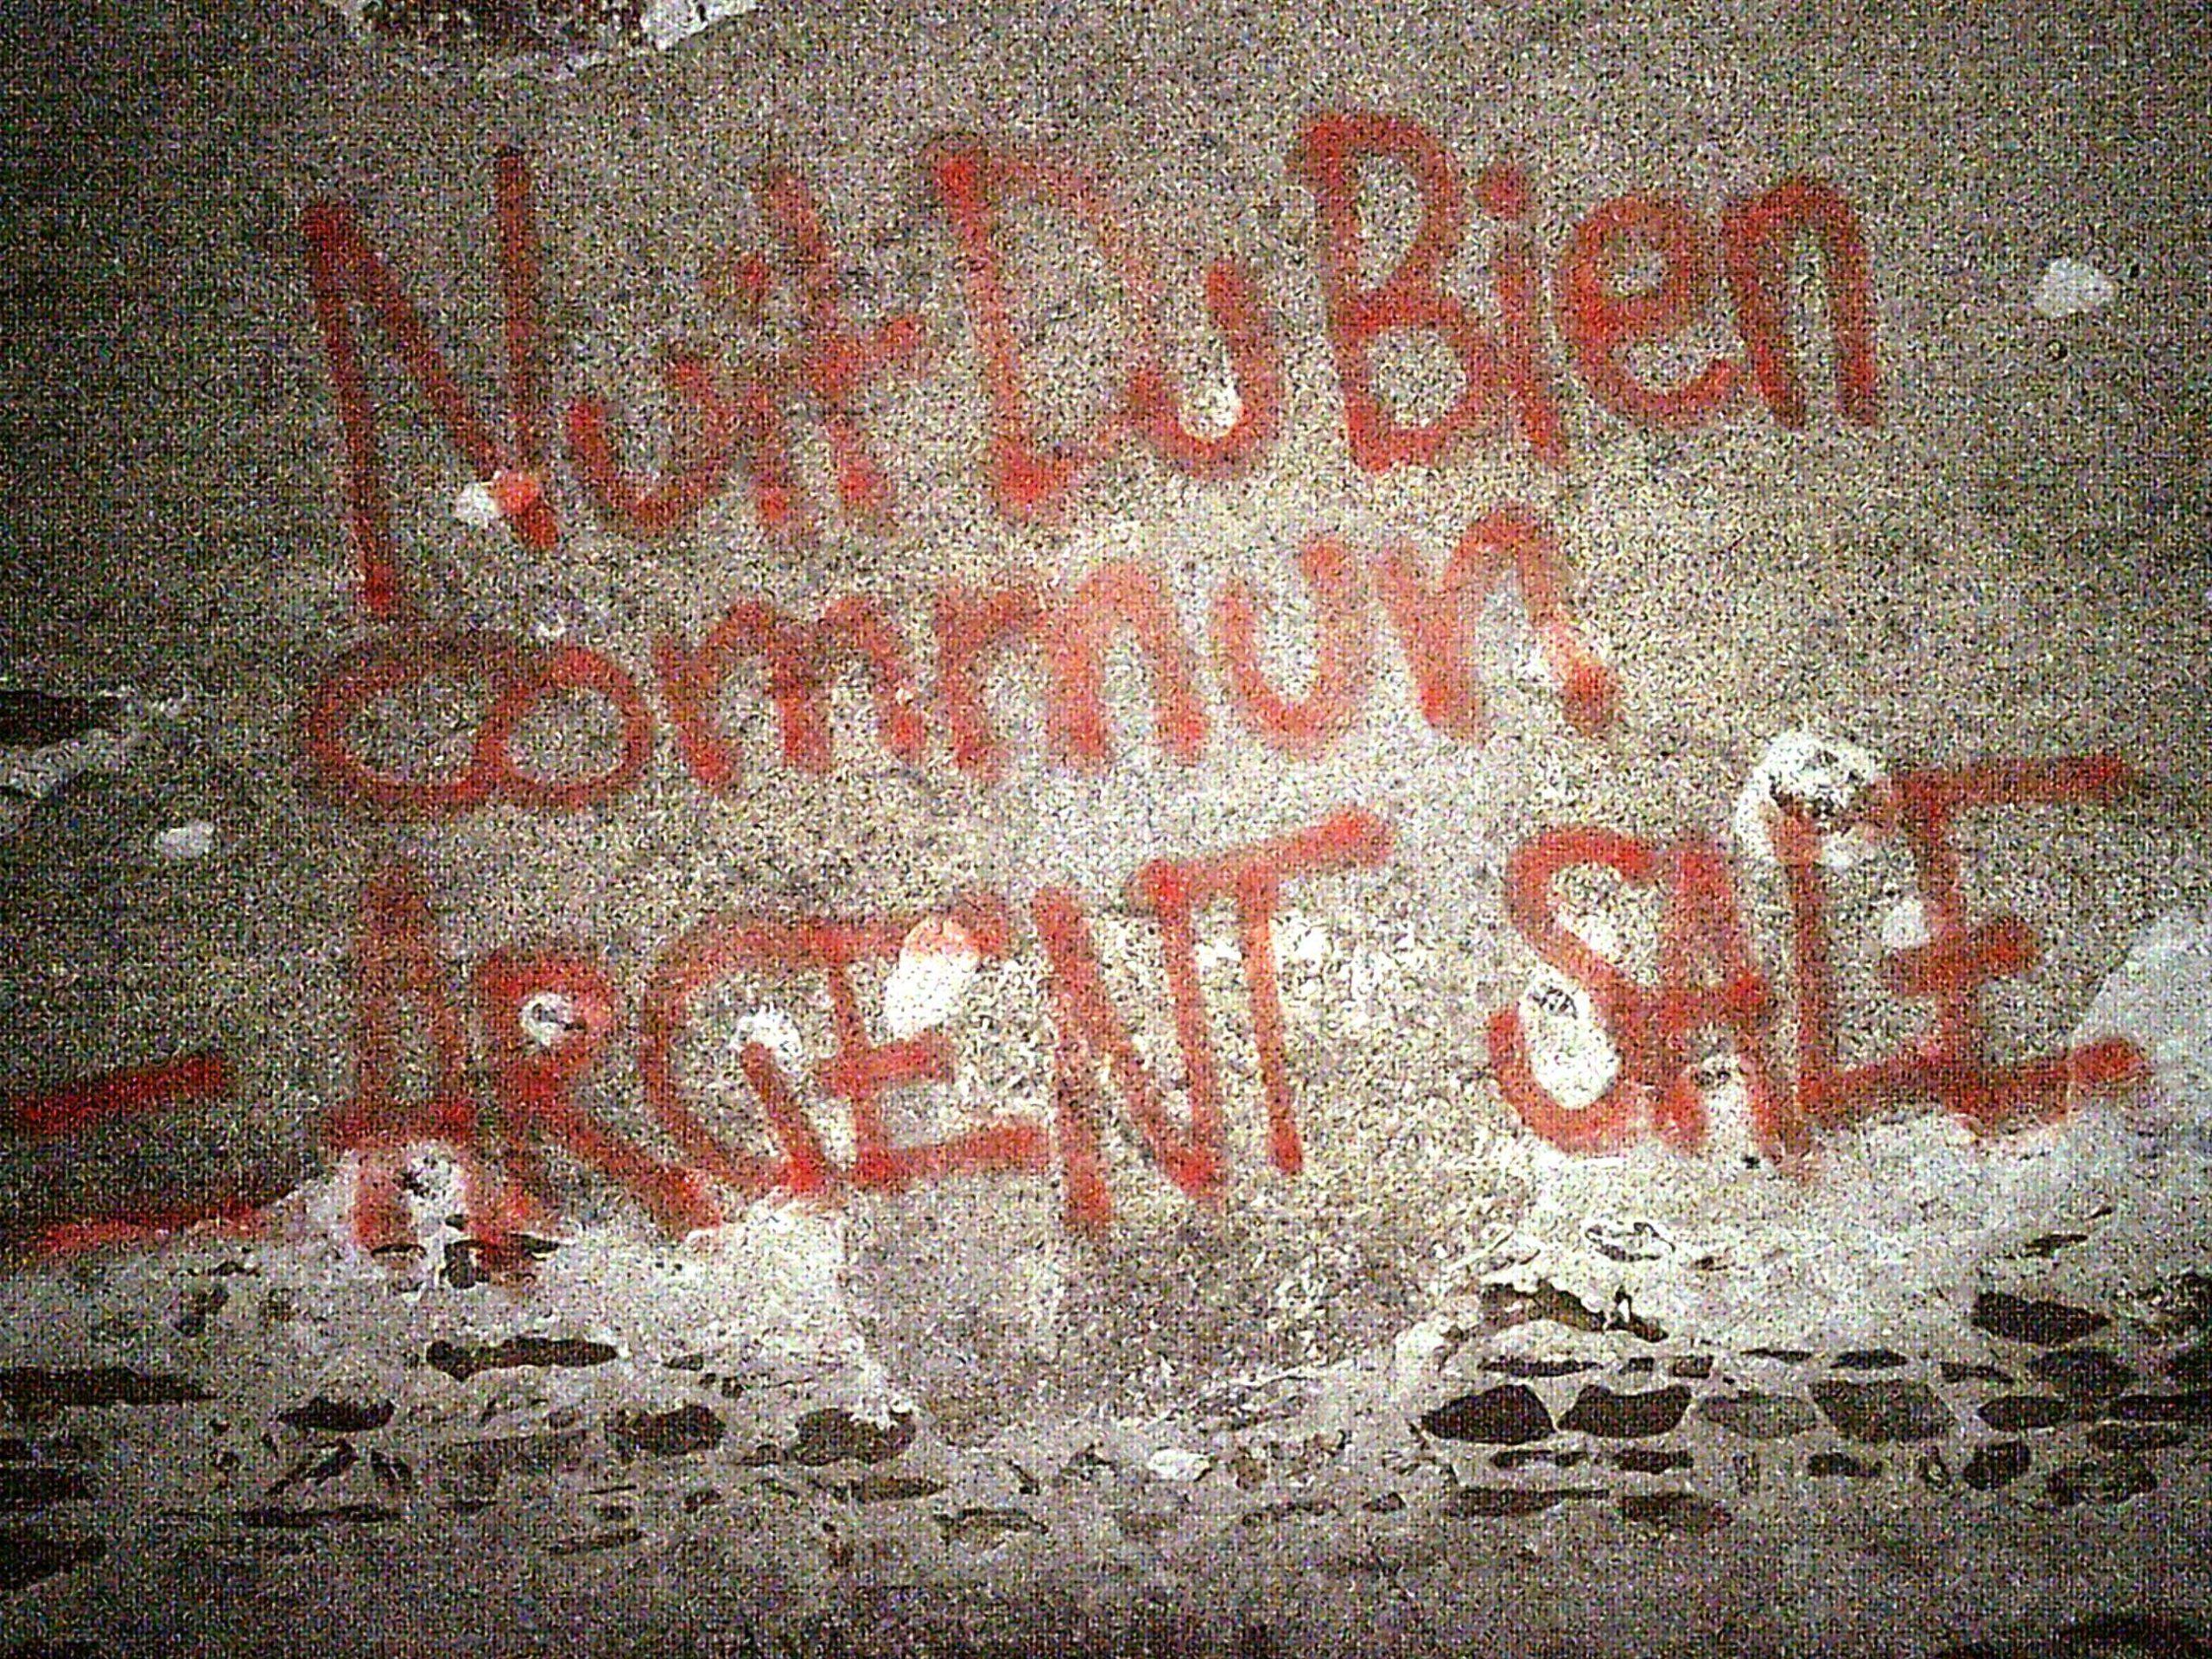 Nuit Du Bien
Commun
= ARGENT SALE